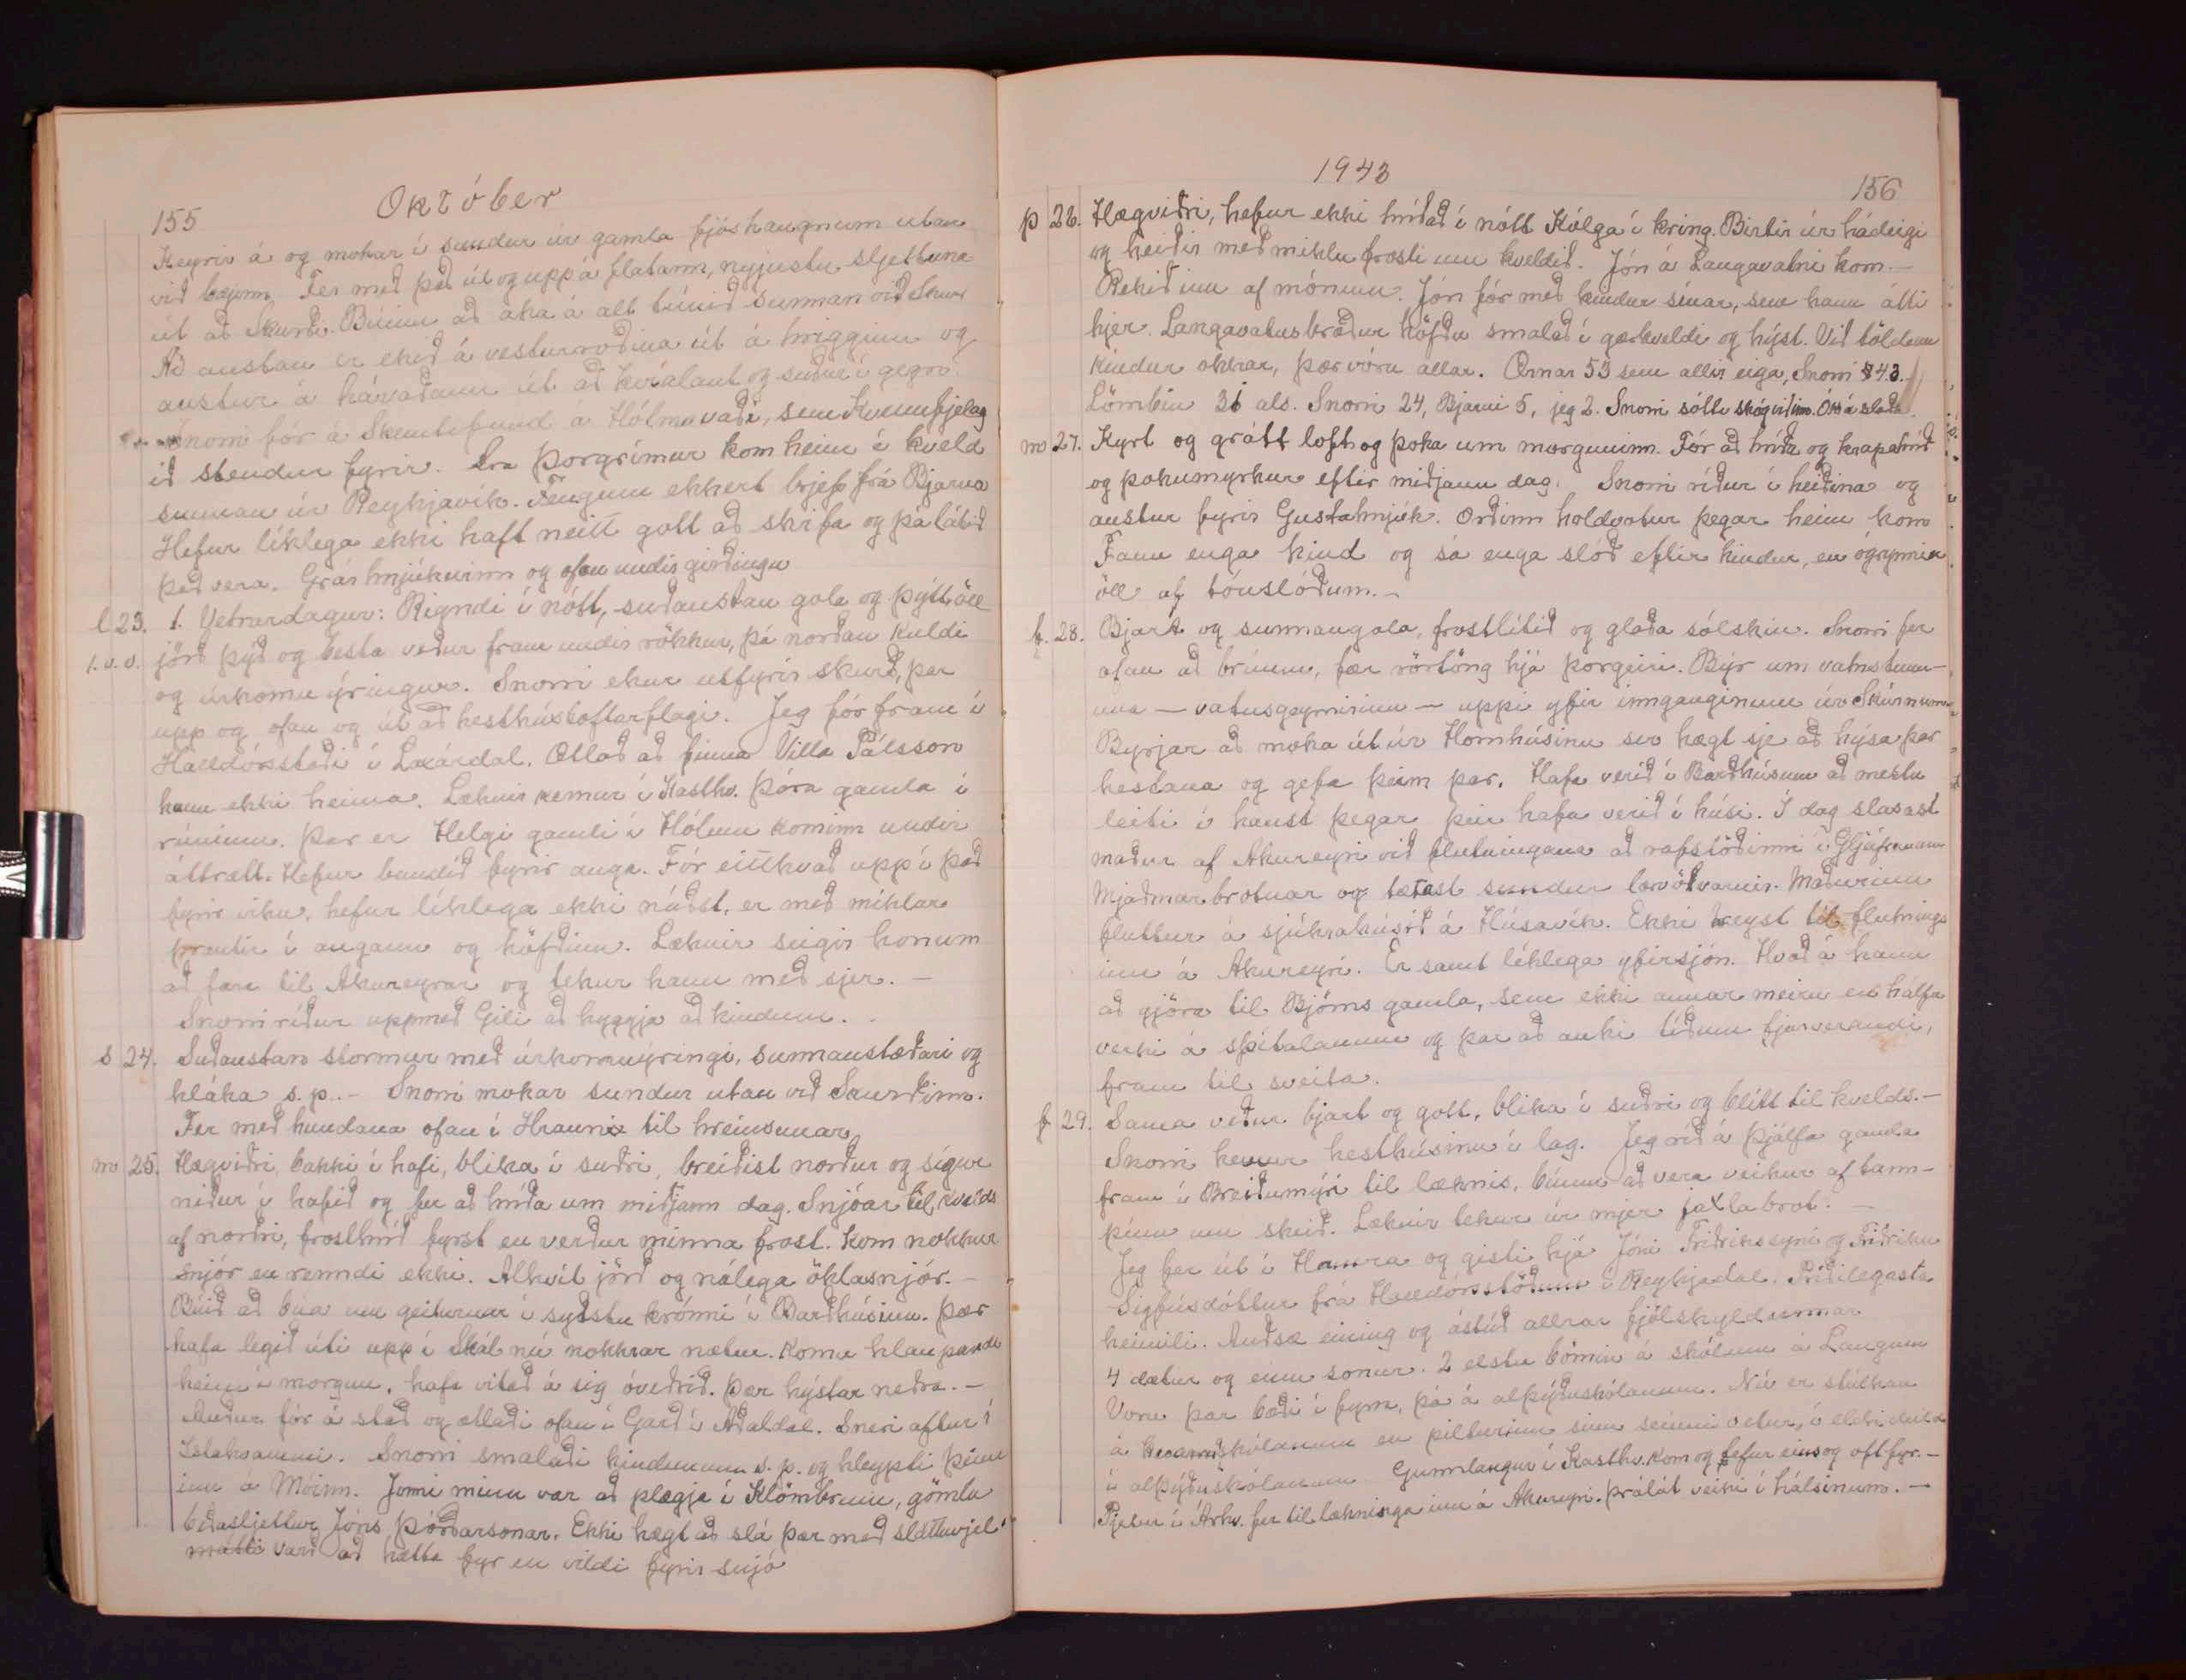 155
Október
Keyrir á og mokar í sundur úr gamla fjóshaugnum utan
við bæjinn. Fer með það út og uppá flatann, nyjustu sljettuna
út að skurði. Búinn að aka á alt túnið sunnan við Skurð
Að austan er ekið á vesturroðina út á hrigginn og
austur á hávaðann út að kvíalaut og suður í gegn.
Snorri fór á Skemtifund á Hólmavaði, sem Kvennfjelag
ið stendur fyrir. Sra Þorgrímur kom heim í kveld
sunnan úr Reykjavík. Fengum ekkert brjef frá Bjarna
Hefur líklega ekki haft neitt gott að skrifa og þá látið
það vera. Grár hnjúkurinn og ofan undir girðingu
l 23. 1. Vetrardagur: Rigndi í nótt, suðaustan gola og þýtt, öll
1. v. v. jörð þýð og besta veður fram undir rökkur, þá norðan kuldi
og úrkomu ýringur. Snorri ekur utfyrir skurð, þar
upp og ofan og út að hesthústoftarflagi. Jeg fór fram í
Halldórsstaði í Laxárdal. Ætlað að finna Villa Pálsson
hann ekki heima. Læknir kemur í Kasthv. Þóra gamla í
rúminu. Þar er Helgi gamli í Hólum kominn undir
áttrætt. Hefur bundið fyrir auga. Fór eitthvað uppí það
fyrir viku, hefur líklega ekki náðst, er með miklar
þrautir í auganu og höfðinu. Læknir seigir honum
að fara til Akureyrar og tekur hann með sjer. -
Snorri ríður uppmeð Gili að hyggja að kindum. -
s 24. Suðaustan stormur með úrkomuýringi, sunnanstæðari og
hláka s. p. - Snorri mokar sundur utan við Skurðinn.
Fer með hundana ofan í Hraun til hreinsunar
m 25. Hægviðri, bakki í hafi, blika í suðri, breiðist norður og sígur
niður í hafið og fer að hríða um miðjann dag. Snjóar til kvelds
af norðri, frosthríð fyrst en verður minna frost. Kom nokkur
snjór en renndi ekki. Alhvít jörð og nálega öklasnjór. -
Búið að búa um geiturnar í sydstu krónni í Barðhúsinu. Þær
hafa legið úti uppí Skál nú nokkrar nætur. Komu hlaupandi
heim í morgun, hafa vitað á sig óveðrið. Þær hýstar neðra. -
Auður fór á stað og ætlaði ofan í Garð í Aðaldal. Sneri aftur í
Ystahvammi. Snorri smalaði kindunum s. p. og hleypti þeim
inn á Móinn. Jonni minn var að plægja í Klömbrum, gömlu
beðasljettur Jóns Þórðarsonar. Ekki hægt að slá þær með sláttuvjel
mátti varð að hætta fyr en vildi fyrir snjó
1943
156
þ 26. Hægviðri, hefur ekki hríðað í nótt Kólga í kring. Birtir úr hádeigi
og heiðir með miklu frosti um kveldið. Jón á Langavatni kom. -
Rekið inn af mónum. Jón fór með kindur sínar, sem hann átti
hjer. Langavatnsbræður höfðu smalað í gærkveldi og hýst. Við töldum
kindur okkrar, þær vóru allar. Ærnar 53 sem allir eiga, Snorri 43.
Lömbin 31 als. Snorri 24, Bjarni 5, jeg 2. Snorri sótti skógviðinn. Ók á sleða.
m 27. Kyrt og grátt loft og þoka um morguninn. Fór að hríða og krapahríð
og þokumyrkur eftir miðjann dag. Snorri ríður í heiðina og
austur fyrir Gustahnjúk. Orðinn holdvotur þegar heim kom
Fann enga kind og sá enga slóð eftir kindur, en ógrynnin
öll af tóuslóðum. -
f. 28. Bjart og sunnangola, frostlítið og glaða sólskin. Snorri fer
ofan að brúnum, fær rörtöng hjá Þorgeiri. Býr um vatnstunn-
una - vatnsgeymirinn - uppi yfir innganginum úr Skúrnum
Byrjar að moka út úr Hornhúsinu svo hægt sje að hýsa þar
hestana og gefa þeim þar. Hafa verið í Barðhúsum að mestu
leiti í haust þegar þeir hafa verið í húsi. Í dag slasast
maður af Akureyri við flutningana að rafstöðinni í Gljúfrunum
Mjaðmarbrotnar og tætast sundur lærvöðvarnir. Maðurinn
fluttur á sjúkrahúsið á Húsavík. Ekki treyst til flutnings
inn á Akureyri. Er samt líklega yfirsjón. Hvað á hann
að gjöra til Björns gamla, sem ekki annar meiru en hálfu
verki á spítalanum og þar að auki tíðum fjarverandi,
fram til sveita.
f 29. Sama veður bjart og gott, blika í suðri og blítt til kvelds. -
Snorri kemur hesthúsinu í lag. Jeg ríð á Þjálfa gamla
fram í Breiðumýri til læknis, búinn að vera veikur af tann-
pínu um skeið. Læknir tekur úr mjer jaxlabrot. -
Jeg fer út í Hamra og gisti hjá Jóni Friðrikssyni og Friðriku
Sigfúsdóttur frá Halldórsstöðum í Reykjadal. Prýðilegasta
heimili. Auðsæ eining og ástúð allrar fjölskyldunnar
4 dætur og einn sonur. 2 elstu börnin á skólum á Laugum
Voru þar bæði í fyrra, þá á alþýðuskólanum. Nú er stúlkan
á húsmæðraskólanum en pilturinn sinn seinni vetur, í eldri deild
í alþýðuskólanum Gunnlaugur í Kasthv. kom og tefur eins og oft fyr. -
Pjetur í Árhv. fer til lækninga inn á Akureyri. Þrálát veiki í hálsinum. -